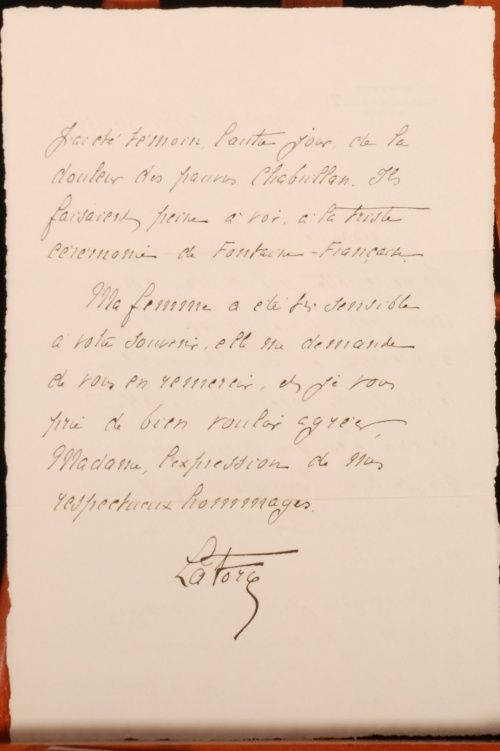 J'ai été témoin, l'autre jour, de la
douleur des pauvres Chabrillan. Ils
faisaient peine à voir, à la triste
cérémonie de Fontaine-Française
Ma femme a été très sensible
à votre souvenir, elle me demande
de vous en remercier, et je vous
prie de bien vouloir agréer,
Madame, l'expression de mes
respectueux hommages.
La Force